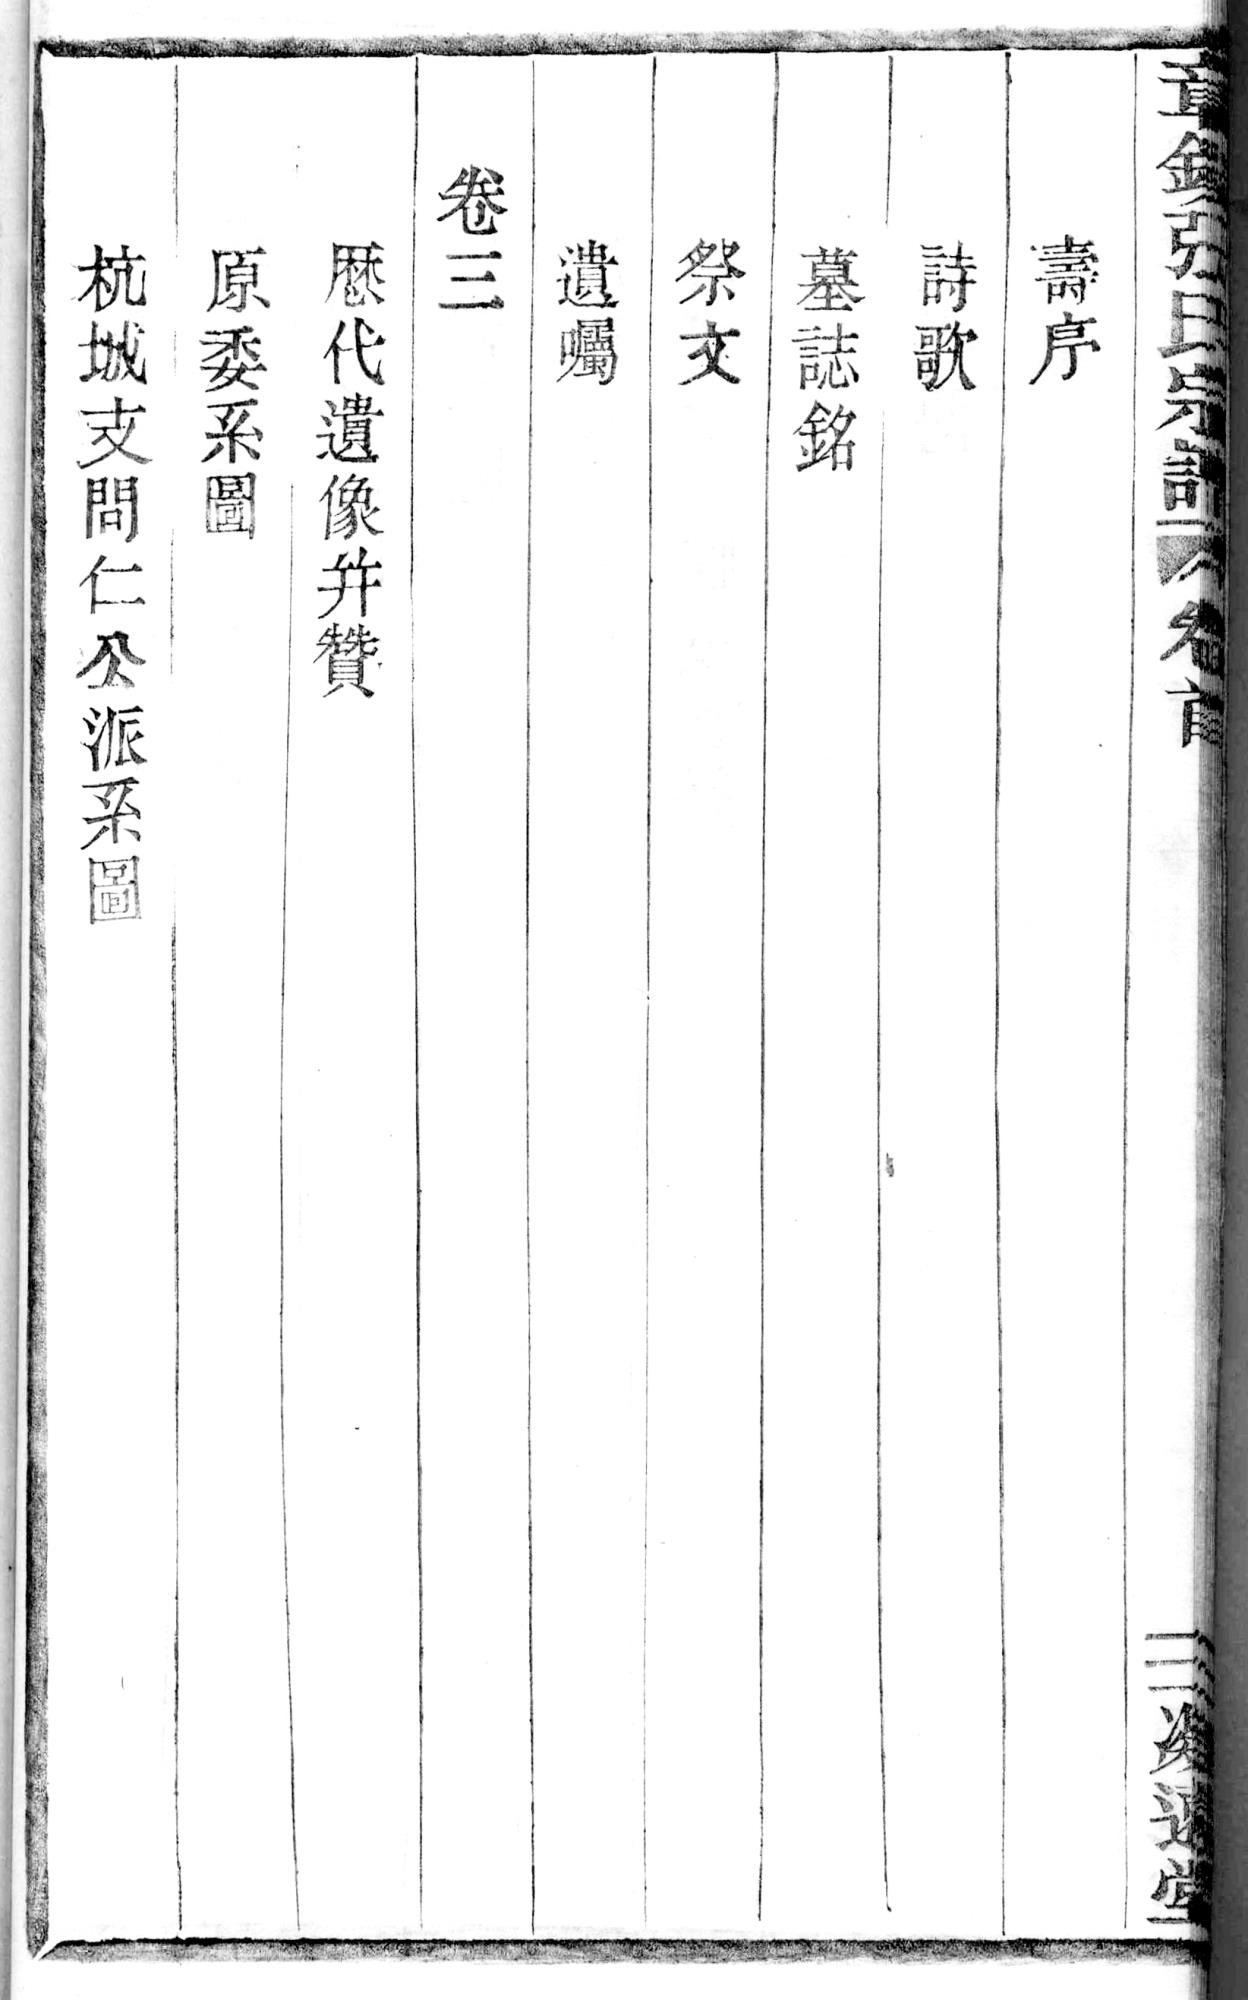 章鎮張氏宗譜 卷首
壽序
詩歌
墓誌銘
祭文
遺囑
卷三
厯代遺像并贊
原委系圖
杭城支問仁公派系圖
三 堂